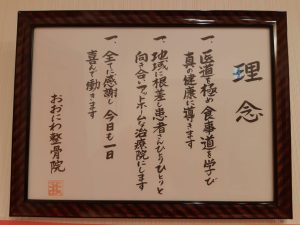 理念
一、医道を極め食事道を学び
真の健康に導きます
一、地域に根差し患者さんひとりひとりと
向き合いアットホームな治療院にします
一、全てに感謝し今日も一日
喜んで働きます
おおにわ整骨院